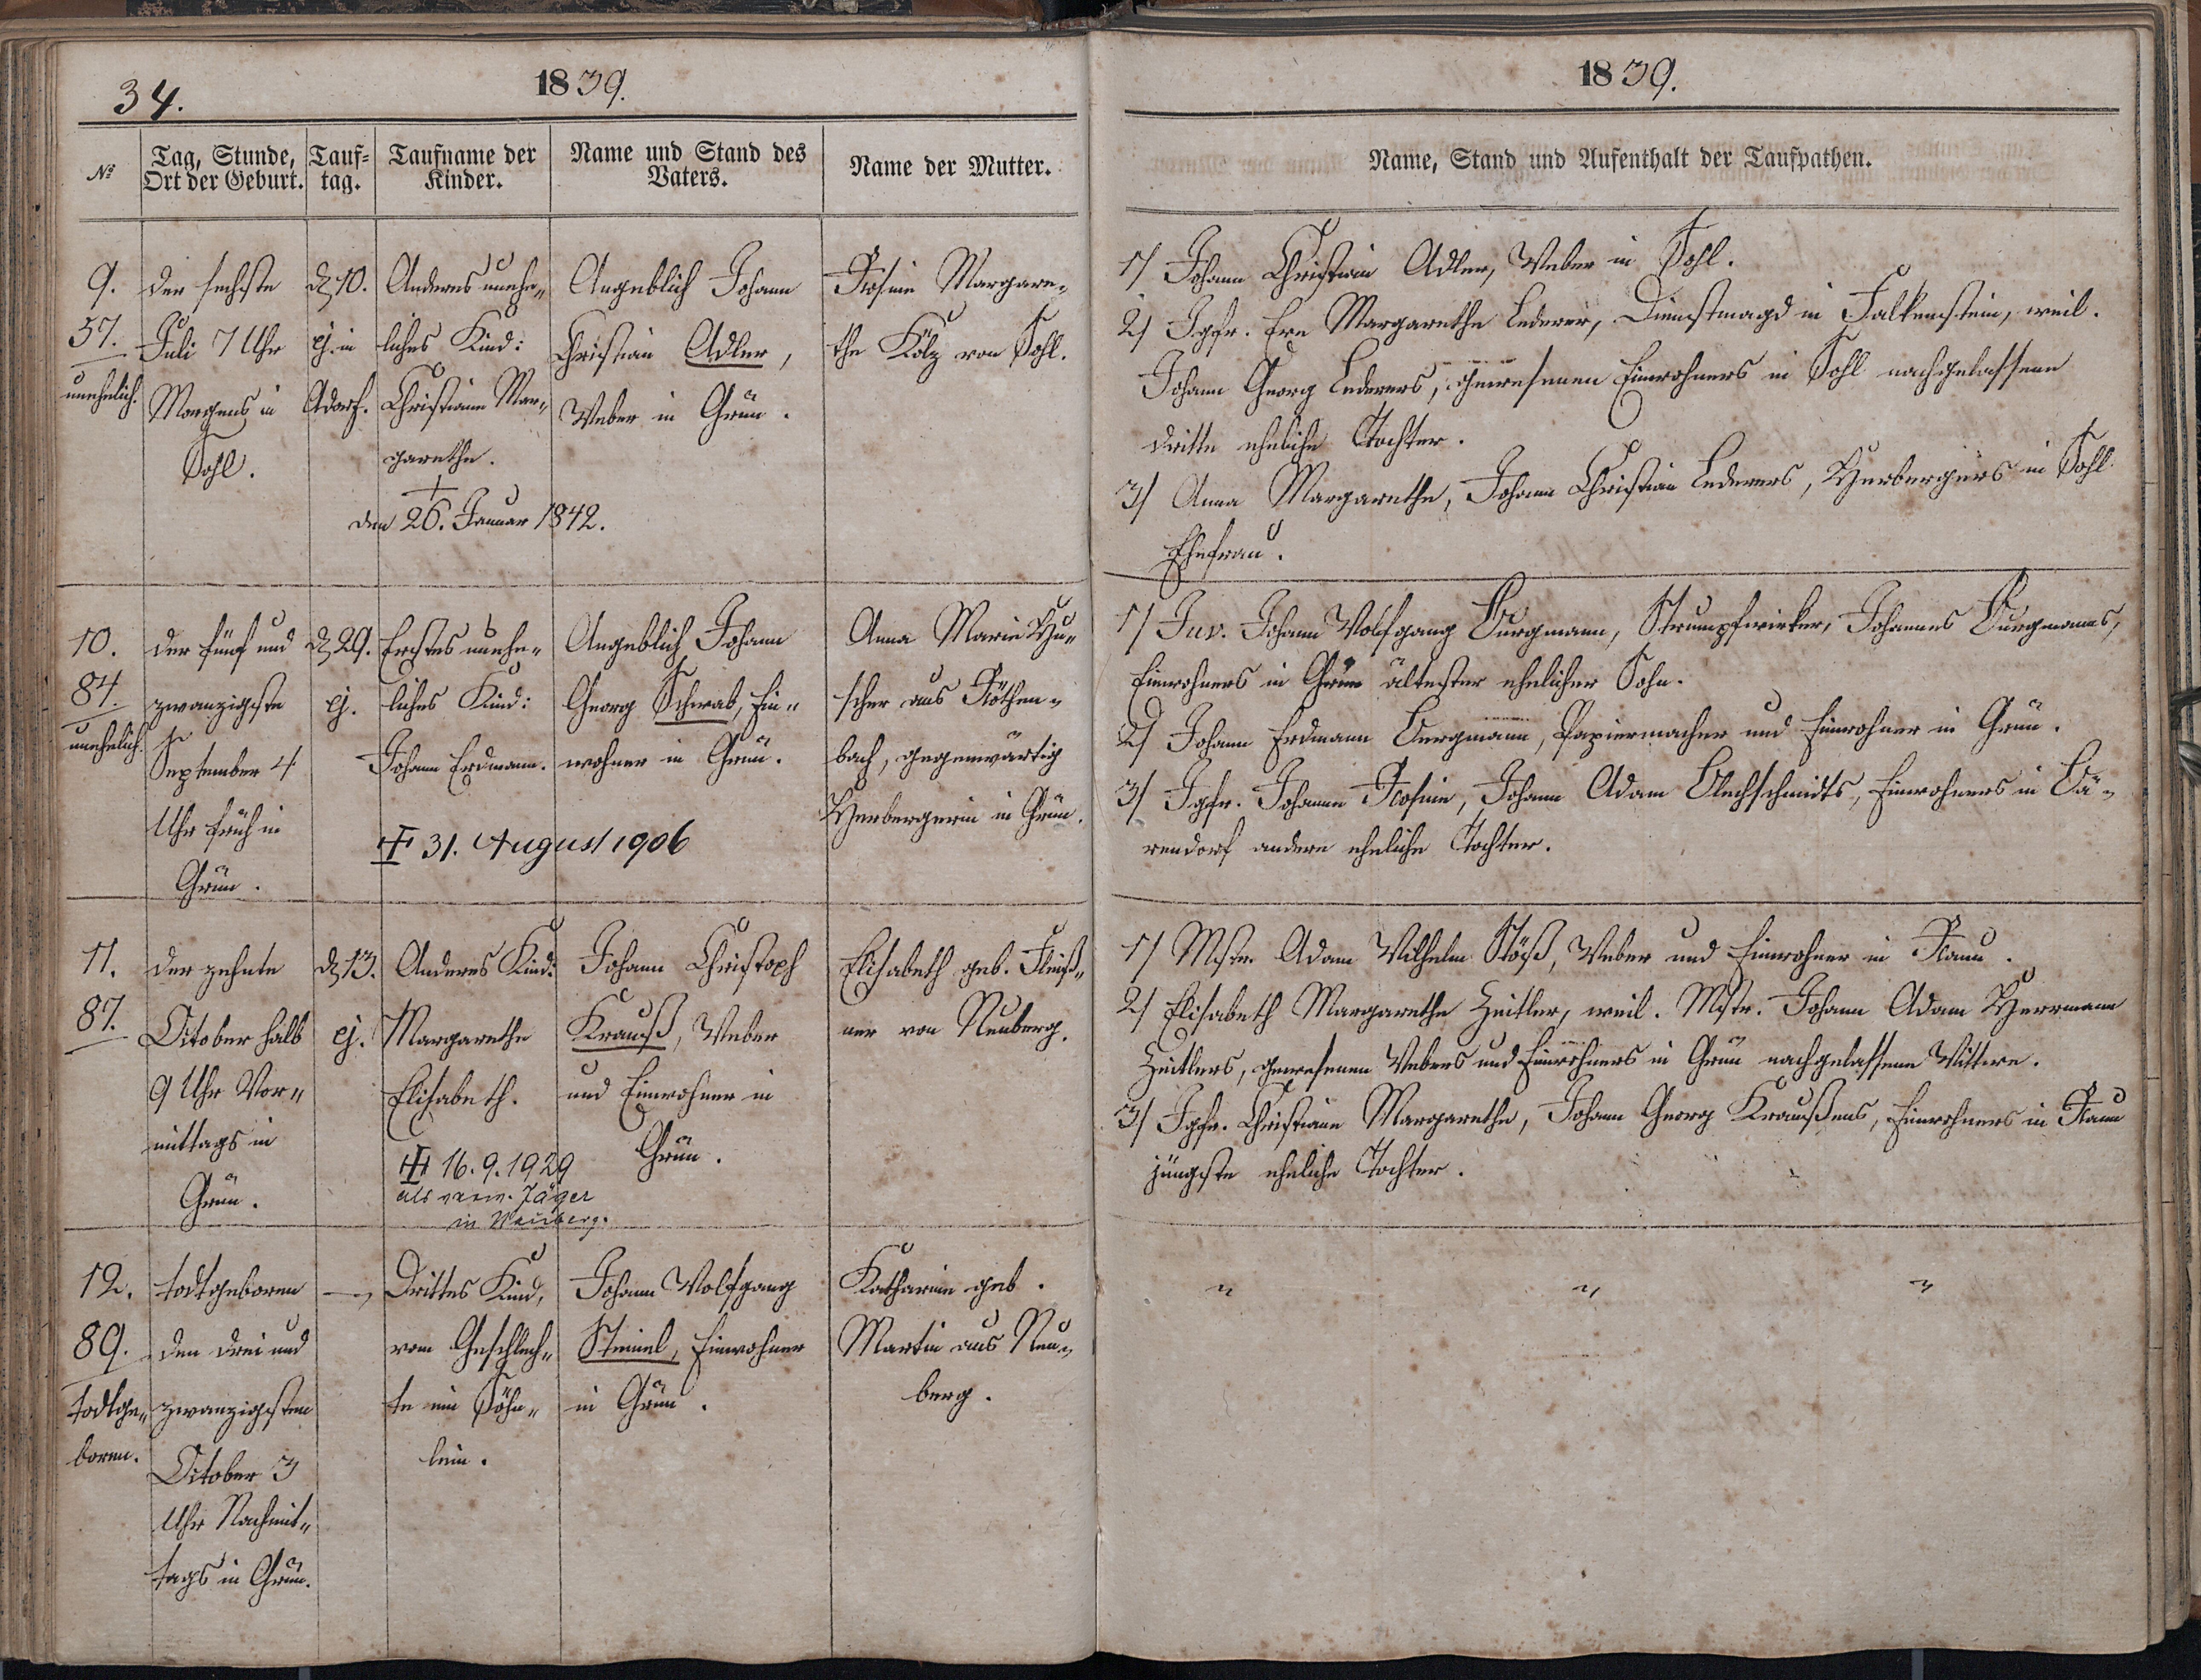 34.
1839.
№
Tag, Stunde,
Ort der Geburt.
Tauf=
tag.
Taufname der
Kinder.
Name und Stand des
Vaters.
Name der Mutter.
9.
57.
unehelich.
der sechste
Juli 7 Uhr
Morgens in
Sohl.
d. 10.
ej. in
Adorf.
Anderes unehe„
liches Kind:
Christiane Mar„
garethe.
†
den 26. Januar 1842.
Angeblich Johann
Christian Adler,
Weber in Grün.
Rosine Margare„
the Kölz von Sohl.
10.
84.
unehelich.
der fünf und
zwanzigste
September 4
Uhr früh in
Grün.
d. 29.
ej.
Erstes unehe„
liches Kind:
Johann Erdmann.
31. August 1906
Angeblich Johann
Georg Schwab, Ein„
wohner in Grün.
Anna Marie Hu„
scher aus Röthen„
bach, gegenwärtig
Herbergerin in Grün.
11.
87.
der zehnte
October halb
9 Uhr Vor„
mittags in
Grün.
d. 13.
ej.
Anderes Kind:
Margarethe
Elisabeth.
16.9.1929
als verw. Jäger
in Neuberg.
Johann Christoph
Krauß, Weber
und Einwohner in
Grün.
Elisabeth geb. Fleiß„
ner von Neuberg.
12.
89.
todtge„
boren.
todtgeboren
den drei und
zwanzigsten
October 3
Uhr Nachmit„
tags in Grün.
Drittes Kind,
vom Geschlech„
te ein Söhn„
lein.
Johann Wolfgang
Steinel, Einwohner
in Grün.
Katharine geb.
Martin aus Neu„
berg.
1839.
Name, Stand und Aufenthalt der Taufpathen.
1/ Johann Christian Adler, Weber in Sohl.
2/ Jgfr. Eva Margarethe Lederer, Dienstmagd in Falkenstein, weil.
Johann Georg Lederers, gewesenen Einwohners in Sohl nachgelassene
dritte eheliche Tochter.
3/ Anna Margarethe, Johann Christian Lederers, Herbergers in Sohl
Ehefrau.
1/ Juv. Johann Wolfgang Burgmann, Strumpfwirker, Johannes Burgmanns,
Einwohners in Grün ältester ehelicher Sohn.
2/ Johann Erdmann Bergmann, Papiermacher und Einwohner in Grün.
3/ Jgfr. Johanne Rosine, Johann Adam Blechschmidts, Einwohners in Bä„
rendorf andere eheliche Tochter.
1/ Mstr. Adam Wilhelm Stöß, Weber und Einwohner in Raun.
2/ Elisabeth Margarethe Zeitler, weil. Mstr. Johann Adam Herrmann
Zeitlers, gewesenen Webers und Einwohners in Grün nachgelassene Wittwe.
3/ Jgfr. Christiane Margarethe, Johann Georg Kraußens, Einwohners in Raun
jüngste eheliche Tochter.